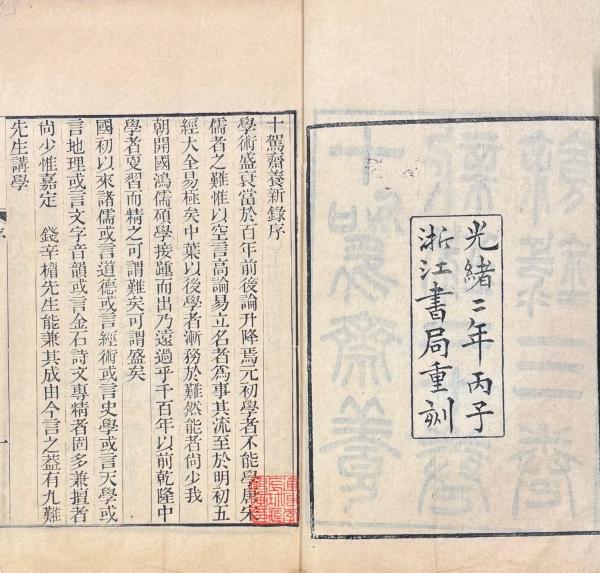 光緒二年丙子
浙江書局重刻
十駕齋養新錄序
學術盛衰當於百年前後論升降焉元初學者不能學唐宋
儒者之難惟以空言高論易立名者為事其流至於明初五
經大全易極矣中葉以後學者漸務於難然能者尙少我
朝開國鴻儒碩學接踵而出乃遠過乎千百年以前乾隆中
學者更習而精之可謂難矣可謂盛矣
國初以來諸儒或言道德或言經術或言史學或言天學或
言地理或言文字音韻或言金石詩文專精者固多兼擅者
尙少惟嘉定 錢辛楣先生能兼其成由今言之蓋有九難
先生講學
序
一